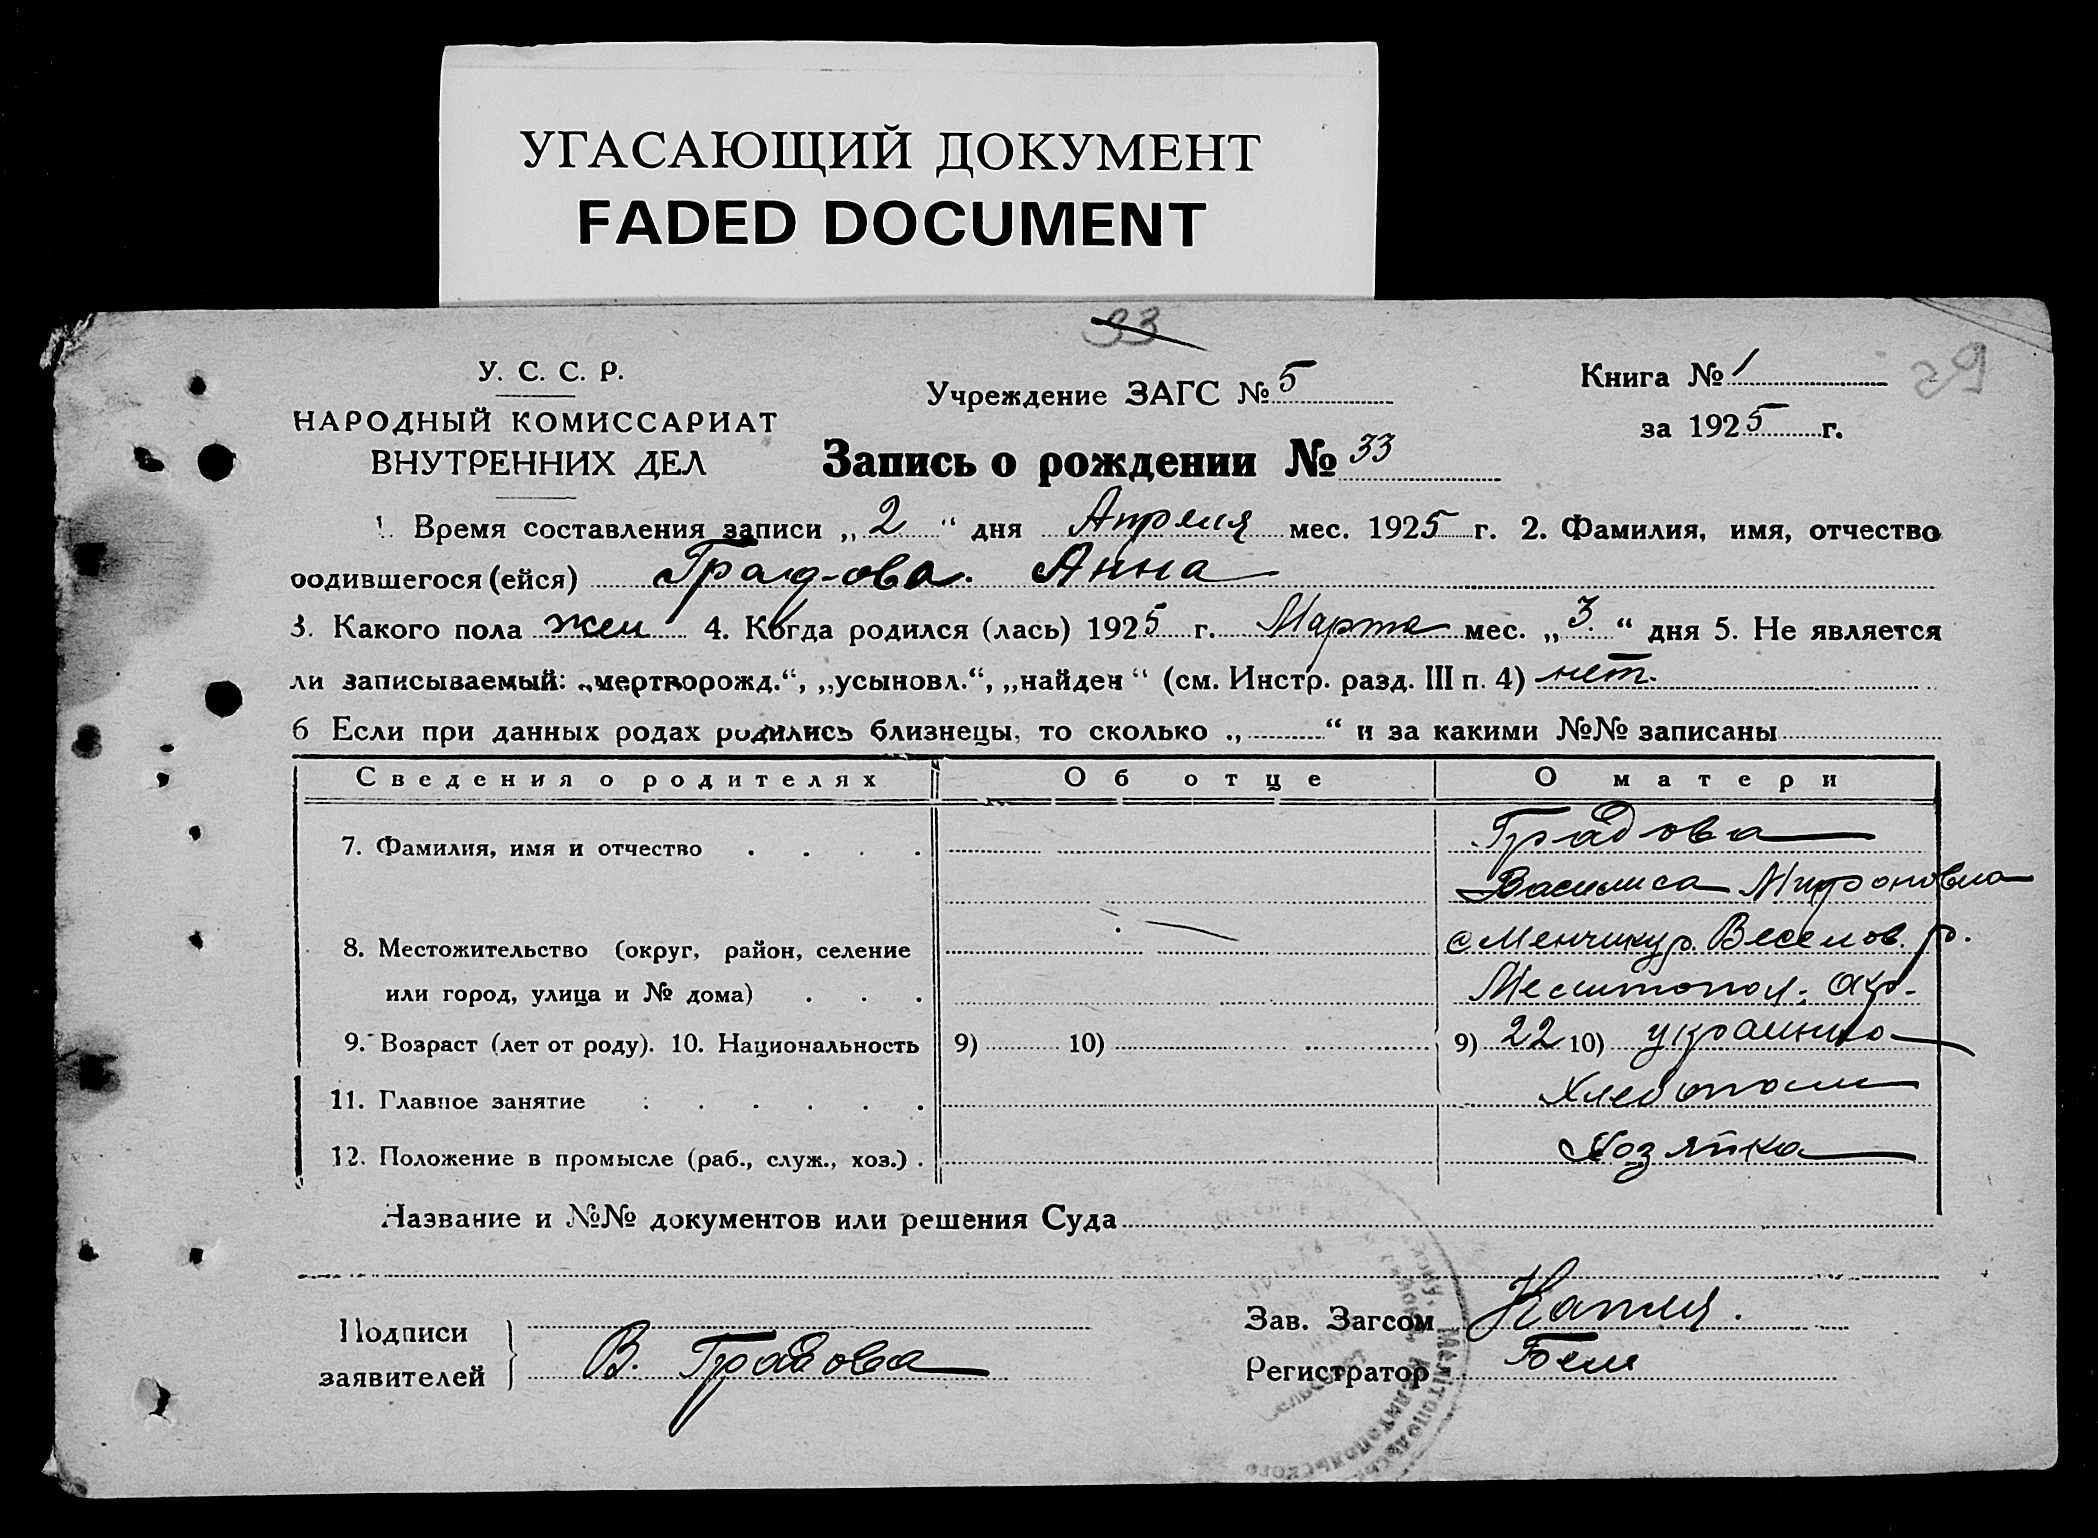 УГАСАЮЩИЙ ДОКУМЕНТ
FADED DOCUMENT
33
У. С. С. Р.
НАРОДНЫЙ КОМИССАРИАТ
ВНУТРЕННИХ ДЕЛ
Учреждение ЗАГС № 5
Книга № 1
за 1925 г.
Запись о рождении № 33
1. Время составления записи „ 2 “ дня Апреля мес. 1925 г. 2. Фамилия, имя, отчество
родившегося (ейся) Градова Анна
3. Какого пола жен 4. Когда родился (лась) 1925 г. Марта мес. „ 3 “ дня 5. Не является
ли записываемый: „мертворожд.“, „усыновл.“, „найден“ (см. Инстр. разд. III п. 4) нет.
6 Если при данных родах родились близнецы, то сколько „ “ и за какими №№ записаны
Сведения о родителях Об отце О матери
7. Фамилия, имя и отчество Градова
Василиса Митроновна
8. Местожительство (округ, район, селение с Менчикур. Веселов. р.
или город, улица и № дома) Мелитопол. окр.
9. Возраст (лет от роду). 10. Национальность 9) 10) 9) 22 10) украинка
11. Главное занятие Хлебопаш
12. Положение в промысле (раб., служ., хоз.) Хозяйка
Название и №№ документов или решения Суда
Подписи
заявителей В. Градова
Зав. Загсом
Регистратор